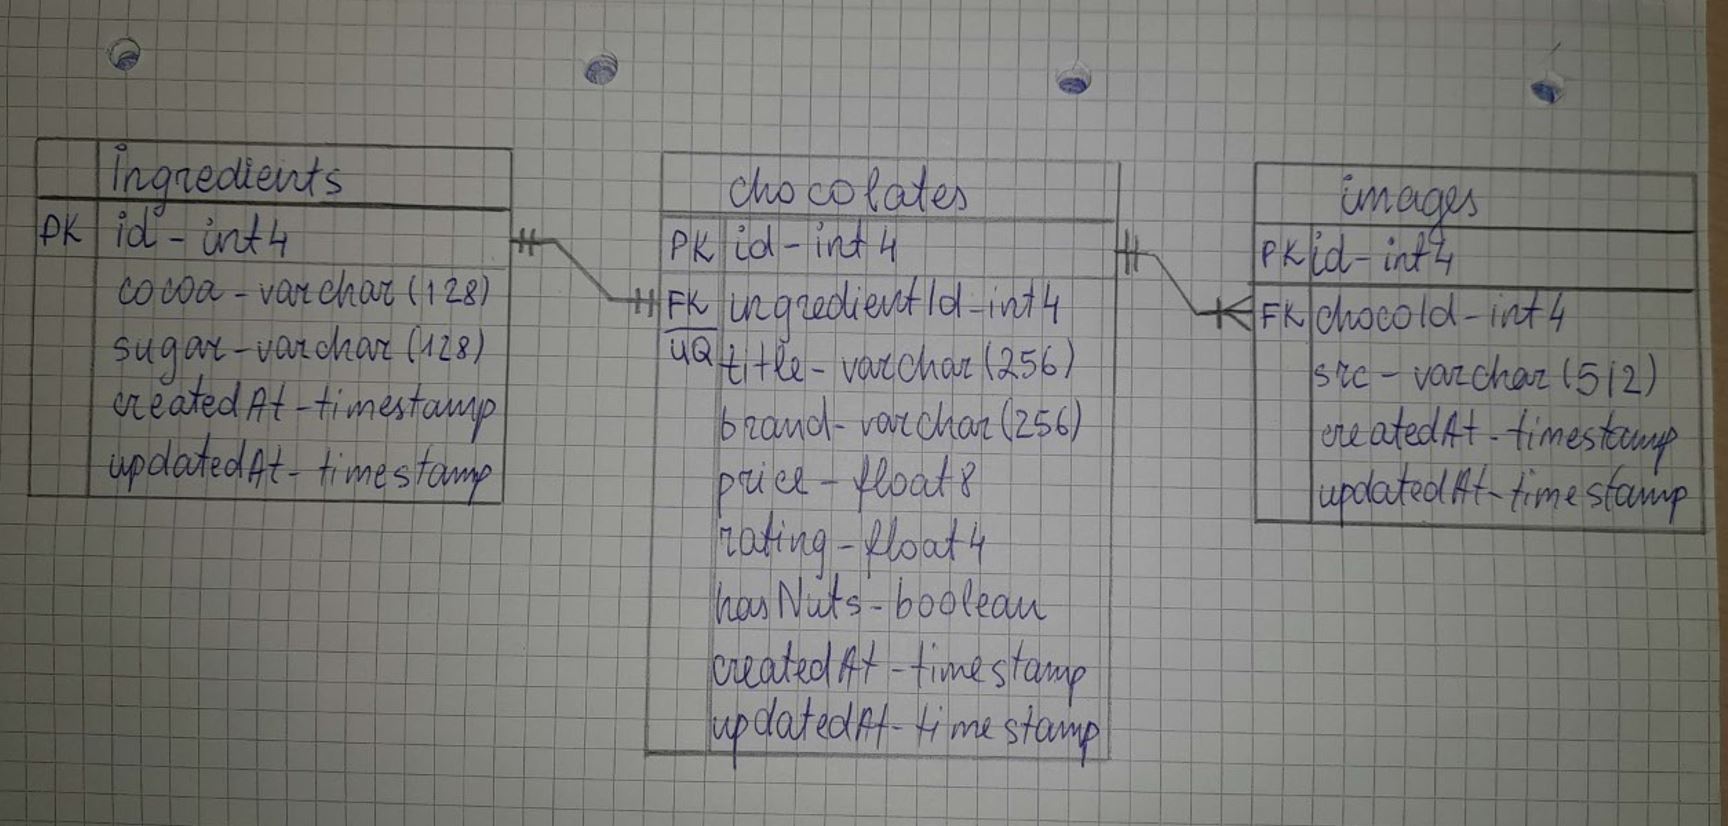 ingredients
PK id - int4
cocoa - varchar (128)
sugar - varchar (128)
createdAt - timestamp
updatedAt - timestamp
chocolates
PK id - int4
FK ingredientId - int4
UQ
title - varchar (256)
brand - varchar (256)
price - float8
rating - float4
hasNuts - boolean
createdAt - timestamp
updatedAt - timestamp
images
PK id - int4
FK chocoId - int4
src - varchar (512)
createdAt - timestamp
updatedAt - timestamp